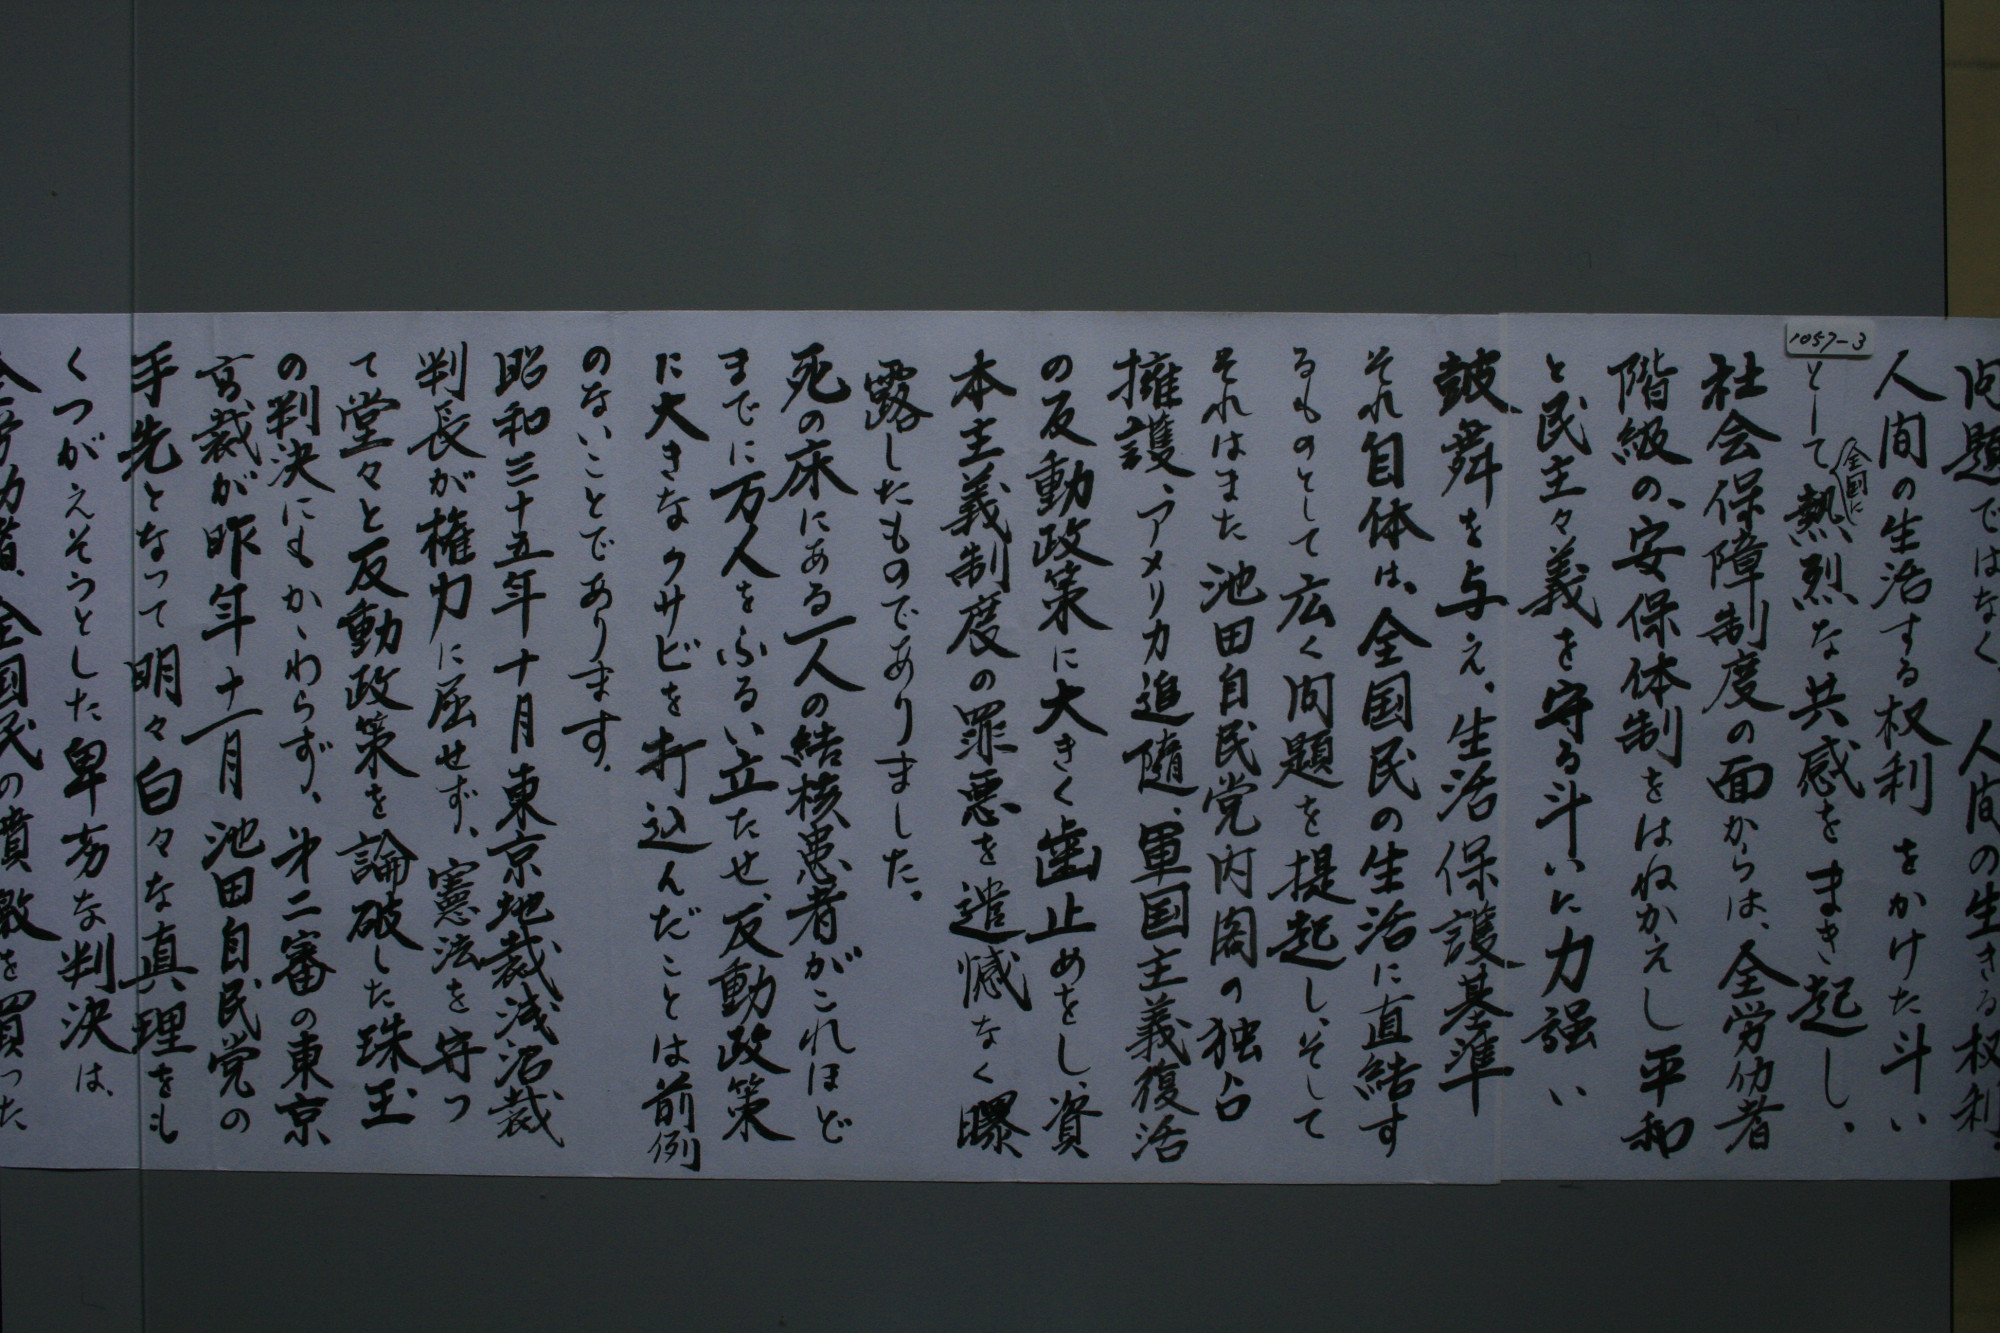 問題ではなく、人間の生きる权利、
人間の生活する权利をかけた斗い
1057-3
として、全国に熱烈な共感をまき起し、
社会保障制度の面からは、全労仂者
階級の、安保体制をはねかえし平和
と民主々義を守る斗いに力強い
鼓舞を与え、生活保護基準
それ自体は、全国民の生活に直結す
るものとして広く問題を提起し、そして
それはまた池田自民党内閣の独占
擁護、アメリカ追随、軍国主義復活
の反動政策に大きく歯止めをし、資
本主義制度の罪悪を遺憾なく曝
露したものでありました。
死の床にある一人の結核患者がこれほど
までに万人をふるい立たせ、反動政策
に大きなクサビを打込んだことは前例
のないことであります。
昭和三十五年十月東京地裁浅沼裁
判長が権力に屈せず、憲法を守っ
て堂々と反動政策を論破した珠玉
の判決にもかゝわらず、才二審の東京
高裁が昨年十一月池田自民党の
手先となって明々白々な真理をも
くつがえそうとした卑劣な判決は、
全労仂者、全国民の憤激を買った